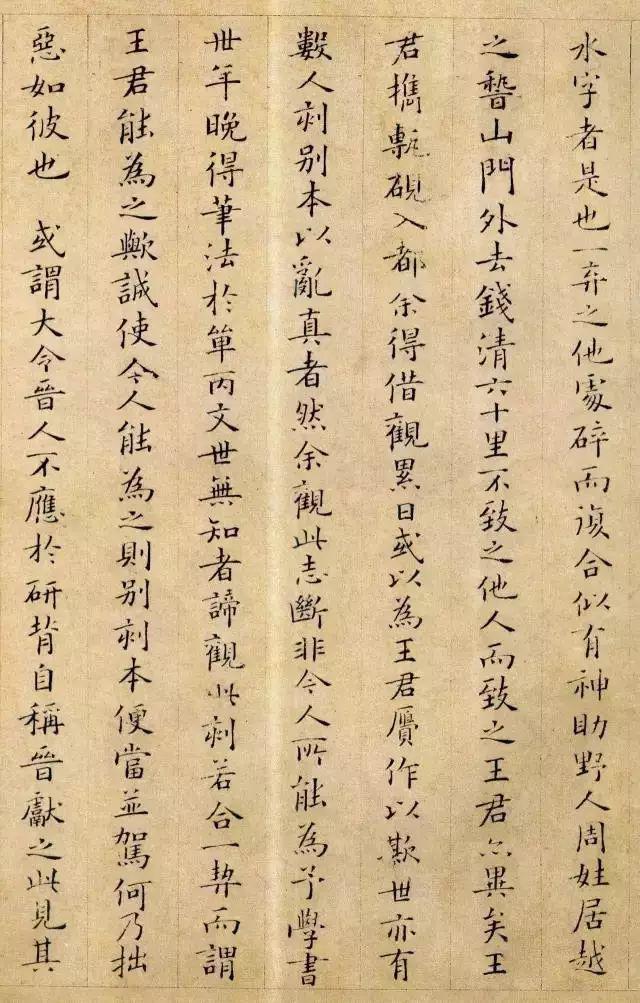 水字者是也一弃之他處碎而復合似有神助野人周姓居越
之稽山門外去錢清六十里不致之他人而致之王君亦異矣王
君攜甎硯入都余得借觀累日或以為王君贗作以欺世亦有
數人刻別本以亂真者然余觀此志斷非今人所能為予學書
卅年晚得筆法於單丙文世無知者諦觀此刻若合一契而謂
王君能為之歟誠使今人能為之則别刻本便當並駕何乃拙
惡如彼也 或謂大令晉人不應於研背自稱晉獻之此見其